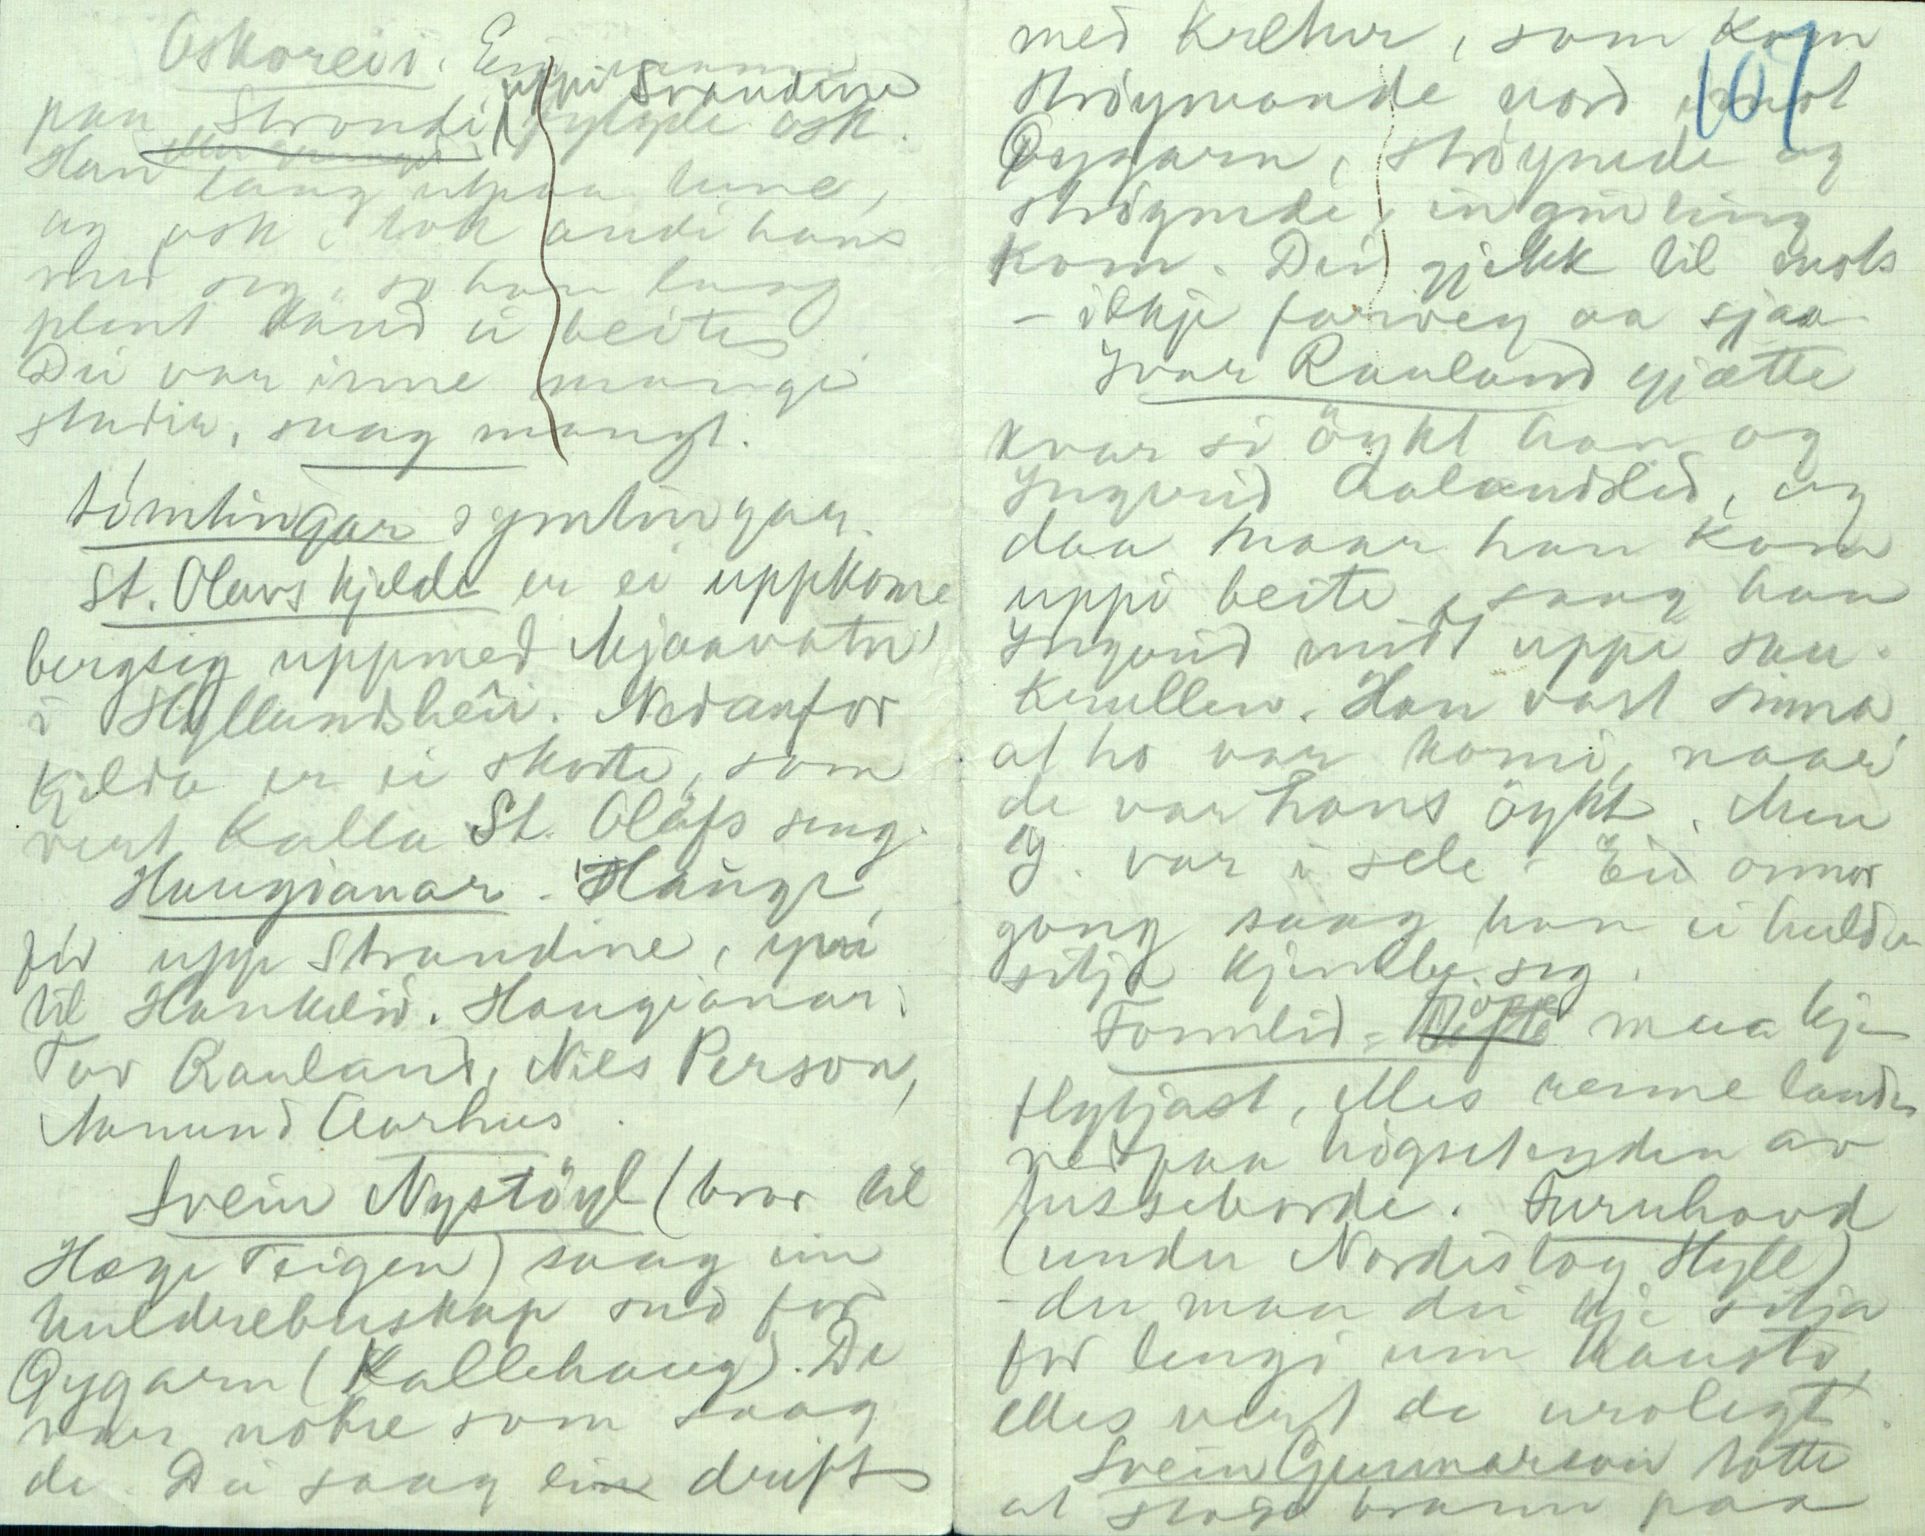 Oskorei i. Ein mann
uppi Strandine
paa Strondi fylgde osk.
Han laag utpaa tune,
og osk. tok andi hans
med seg, so han laag
plent daud ei beite
Dei var inne mange
stadir, saag mangt.
timlingar symlingar.
St. Olavs kjelde er ei uppkome
bergsig uppmed Mjaavatn
i Hyllandsheii. Nedanfor
kjelda er ei skorte, som
vert kalla St. Olafs seng.
Haugianar. Hauge
for upp Strandine, yvi
til Haukelid. Haugianar:
Tor Rauland, Nils Person,
Aamund Aarhus.
Svein Nystöyl (bror til
Hæge Teigen) saag ein
huldrebuskap sud for
Gygarn (Kallehaug). De
var nokre som saag
de. Dei saag ein drift
107
med kretur, som kom
ströymande nord imot
Gygarn, ströymde og
ströymde, ingin ting
kom. Dei gjekk til mots
- ikkje farveg aa sjaa
Ivar Rauland gjætte
kvar si öykt han og
Ingvid Aalandslid, og
daa maar han kom
uppi beite, saag han
Ingvid midt uppe sau-
knullen. Han vart sinna
at ho var komi, naar
de var hans öykt. Men
I. var i sele. Ein annor
gong saag han ei hulder
sitja kjembe seg.
Tonnlid = Djöpe maa kje
flytjast, elles renne landi
ned paa högsetenden av
tusseborde. Furuhovd
(under Nordistog Hyll)
- der maa dei kje sitja
for lengi um hausto,
elles vert de uroligt.
Svein Gunnarson totte
at stoga brann paa